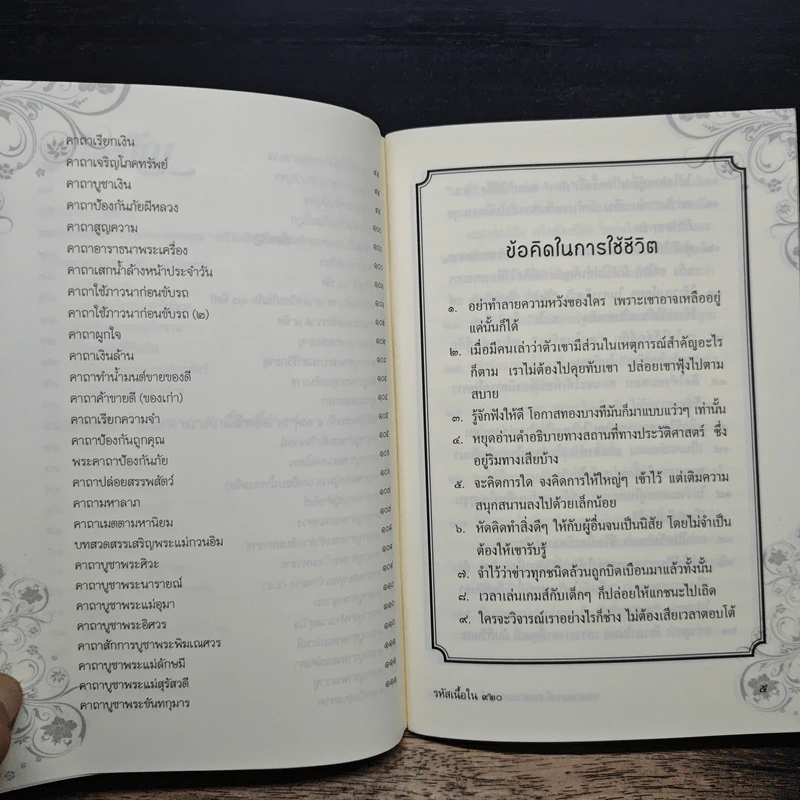 คาถาเรียกเงิน
คาถาเจริญโภคทรัพย์
คาถาบูชาเงิน
คาถาป้องกันภัยผีหลวง
คาถาสูญความ
คาถาอาราธนาพระเครื่อง
คาถาเสกน้ำล้างหน้าประจำวัน
คาถาใช้ภาวนาก่อนขับรถ
คาถาใช้ภาวนาก่อนขับรถ (๒)
คาถาผูกใจ
คาถาเงินล้าน
คาถาทำน้ำมนต์ขายของดี
คาถาค้าขายดี (ของเก่า)
คาถาเรียกความจำ
คาถาป้องกันถูกคุณ
พระคาถาป้องกันภัย
คาถาปล่อยสรรพสัตว์
คาถามหาลาภ
คาถาเมตตามหานิยม
บทสวดสรรเสริญพระแม่กวนอิม
คาถาบูชาพระศิวะ
คาถาบูชาพระนารายณ์
คาถาบูชาพระแม่อุมา
คาถาบูชาพระอิศวร
คาถาสักการบูชาพระพิฆเณศวร
คาถาบูชาพระแม่ลักษมี
คาถาบูชาพระแม่สุรัสวดี
คาถาบูชาพระขันทกุมาร
ข้อคิดในการใช้ชีวิต
๑. อย่าทำลายความหวังของใคร เพราะเขาอาจเหลืออยู่
แค่นั้นก็ได้
๒. เมื่อมีคนเล่าว่าตัวเขามีส่วนในเหตุการณ์สำคัญอะไร
ก็ตาม เราไม่ต้องไปคุยทับเขา ปล่อยเขาฟุ้งไปตาม
สบาย
๓. รู้จักฟังให้ดี โอกาสทองบางทีมันก็มาแบบแว่วๆ เท่านั้น
๔. หยุดอ่านคำอธิบายทางสถานที่ทางประวัติศาสตร์ ซึ่ง
อยู่ริมทางเสียบ้าง
๕. จะคิดการใด จงคิดการให้ใหญ่ๆ เข้าไว้ แต่เติมความ
สนุกสนานลงไปด้วยเล็กน้อย
๖. หัดคิดทำสิ่งดีๆ ให้กับผู้อื่นจนเป็นนิสัย โดยไม่จำเป็น
ต้องให้เขารับรู้
๗. จำไว้ว่าข่าวทุกชนิดล้วนถูกบิดเบือนมาแล้วทั้งนั้น
๘. เวลาเล่นเกมส์กับเด็กๆ ก็ปล่อยให้แกชนะไปเถิด
๙. ใครจะวิจารณ์เราอย่างไรก็ช่าง ไม่ต้องเสียเวลาตอบโต้
รหัสเนื้อใน ๙๒๐
๕